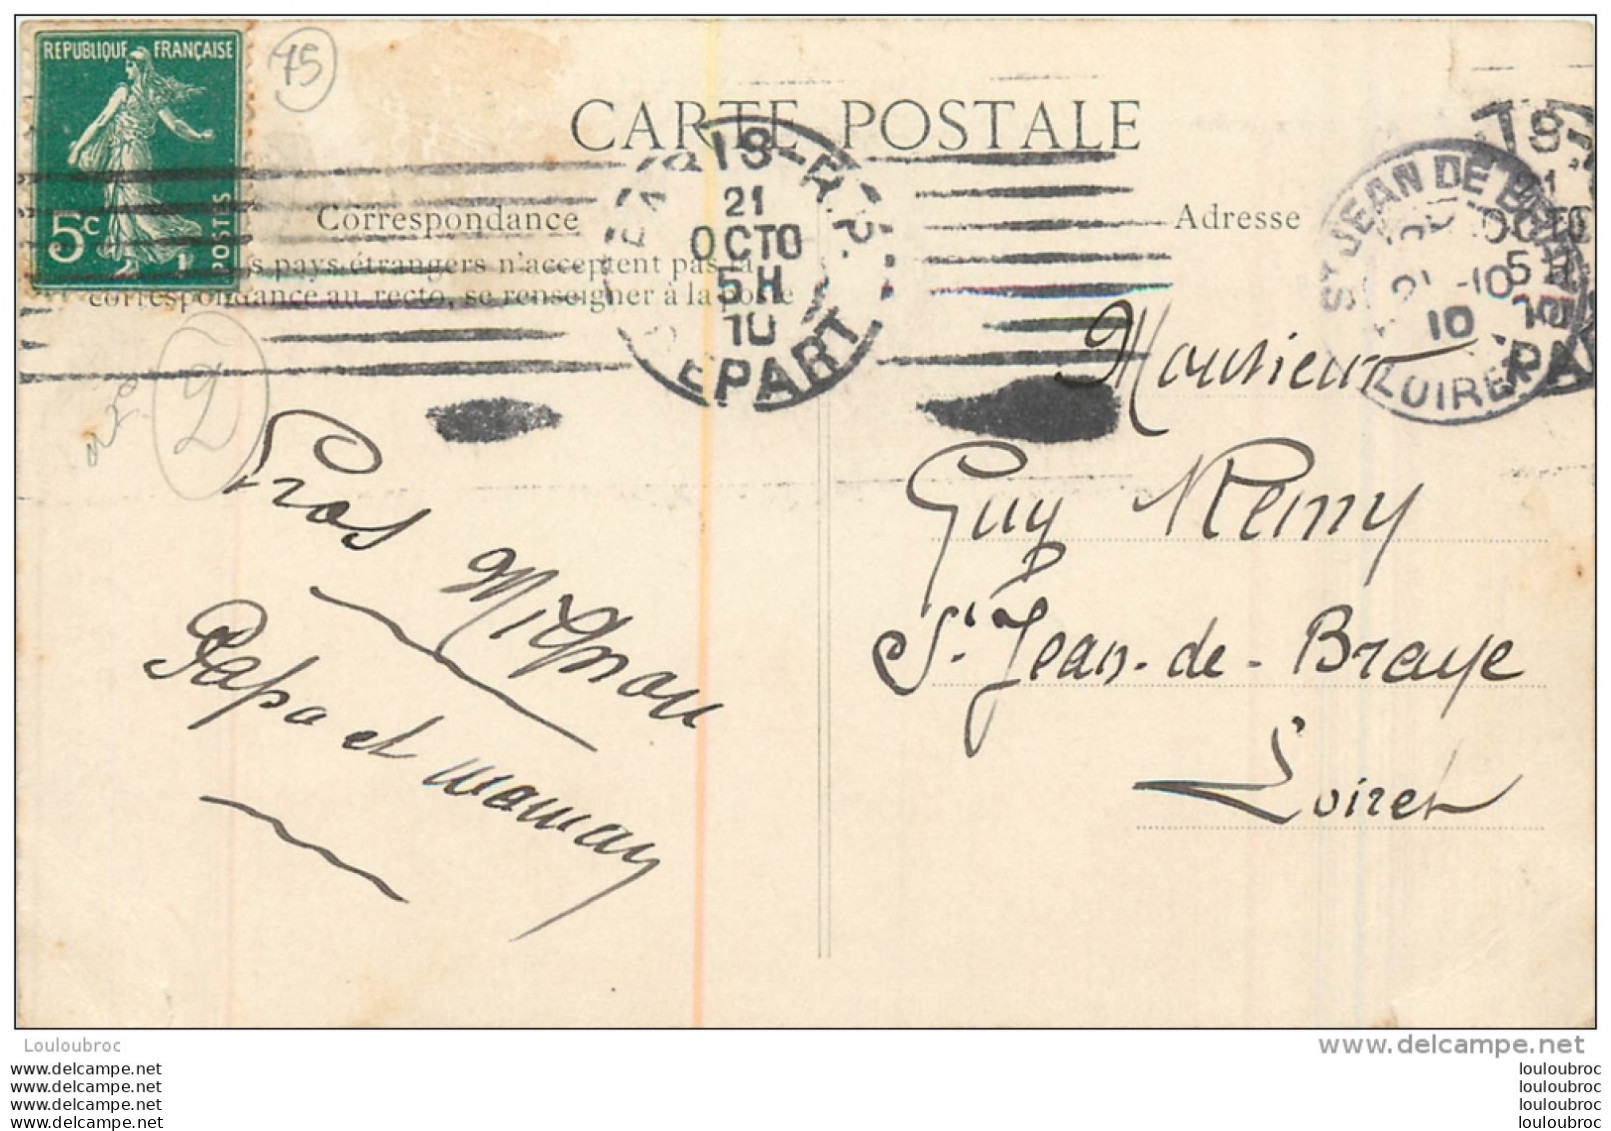 REPUBLIQUE FRANÇAISE
5c
POSTES
75
CARTE POSTALE
Correspondance
Adresse
s pays étrangers n'acceptent pas la
correspondance au recto, se renseigner à la poste
PARIS-R.P.
21
OCTO
5H
10
DEPART
ST JEAN DE BRAYE
21-10
10
LOIRET
OCTO
5H
10
2
Monsieur
Guy Remy
St Jean-de-Braye
Loiret
Gros Mignon
Papa et maman
Louloubroc
www.delcampe.net
www.delcampe.net
www.delcampe.net
www.delcampe.net
www.delcampe.net
louloubroc
louloubroc
louloubroc
louloubroc